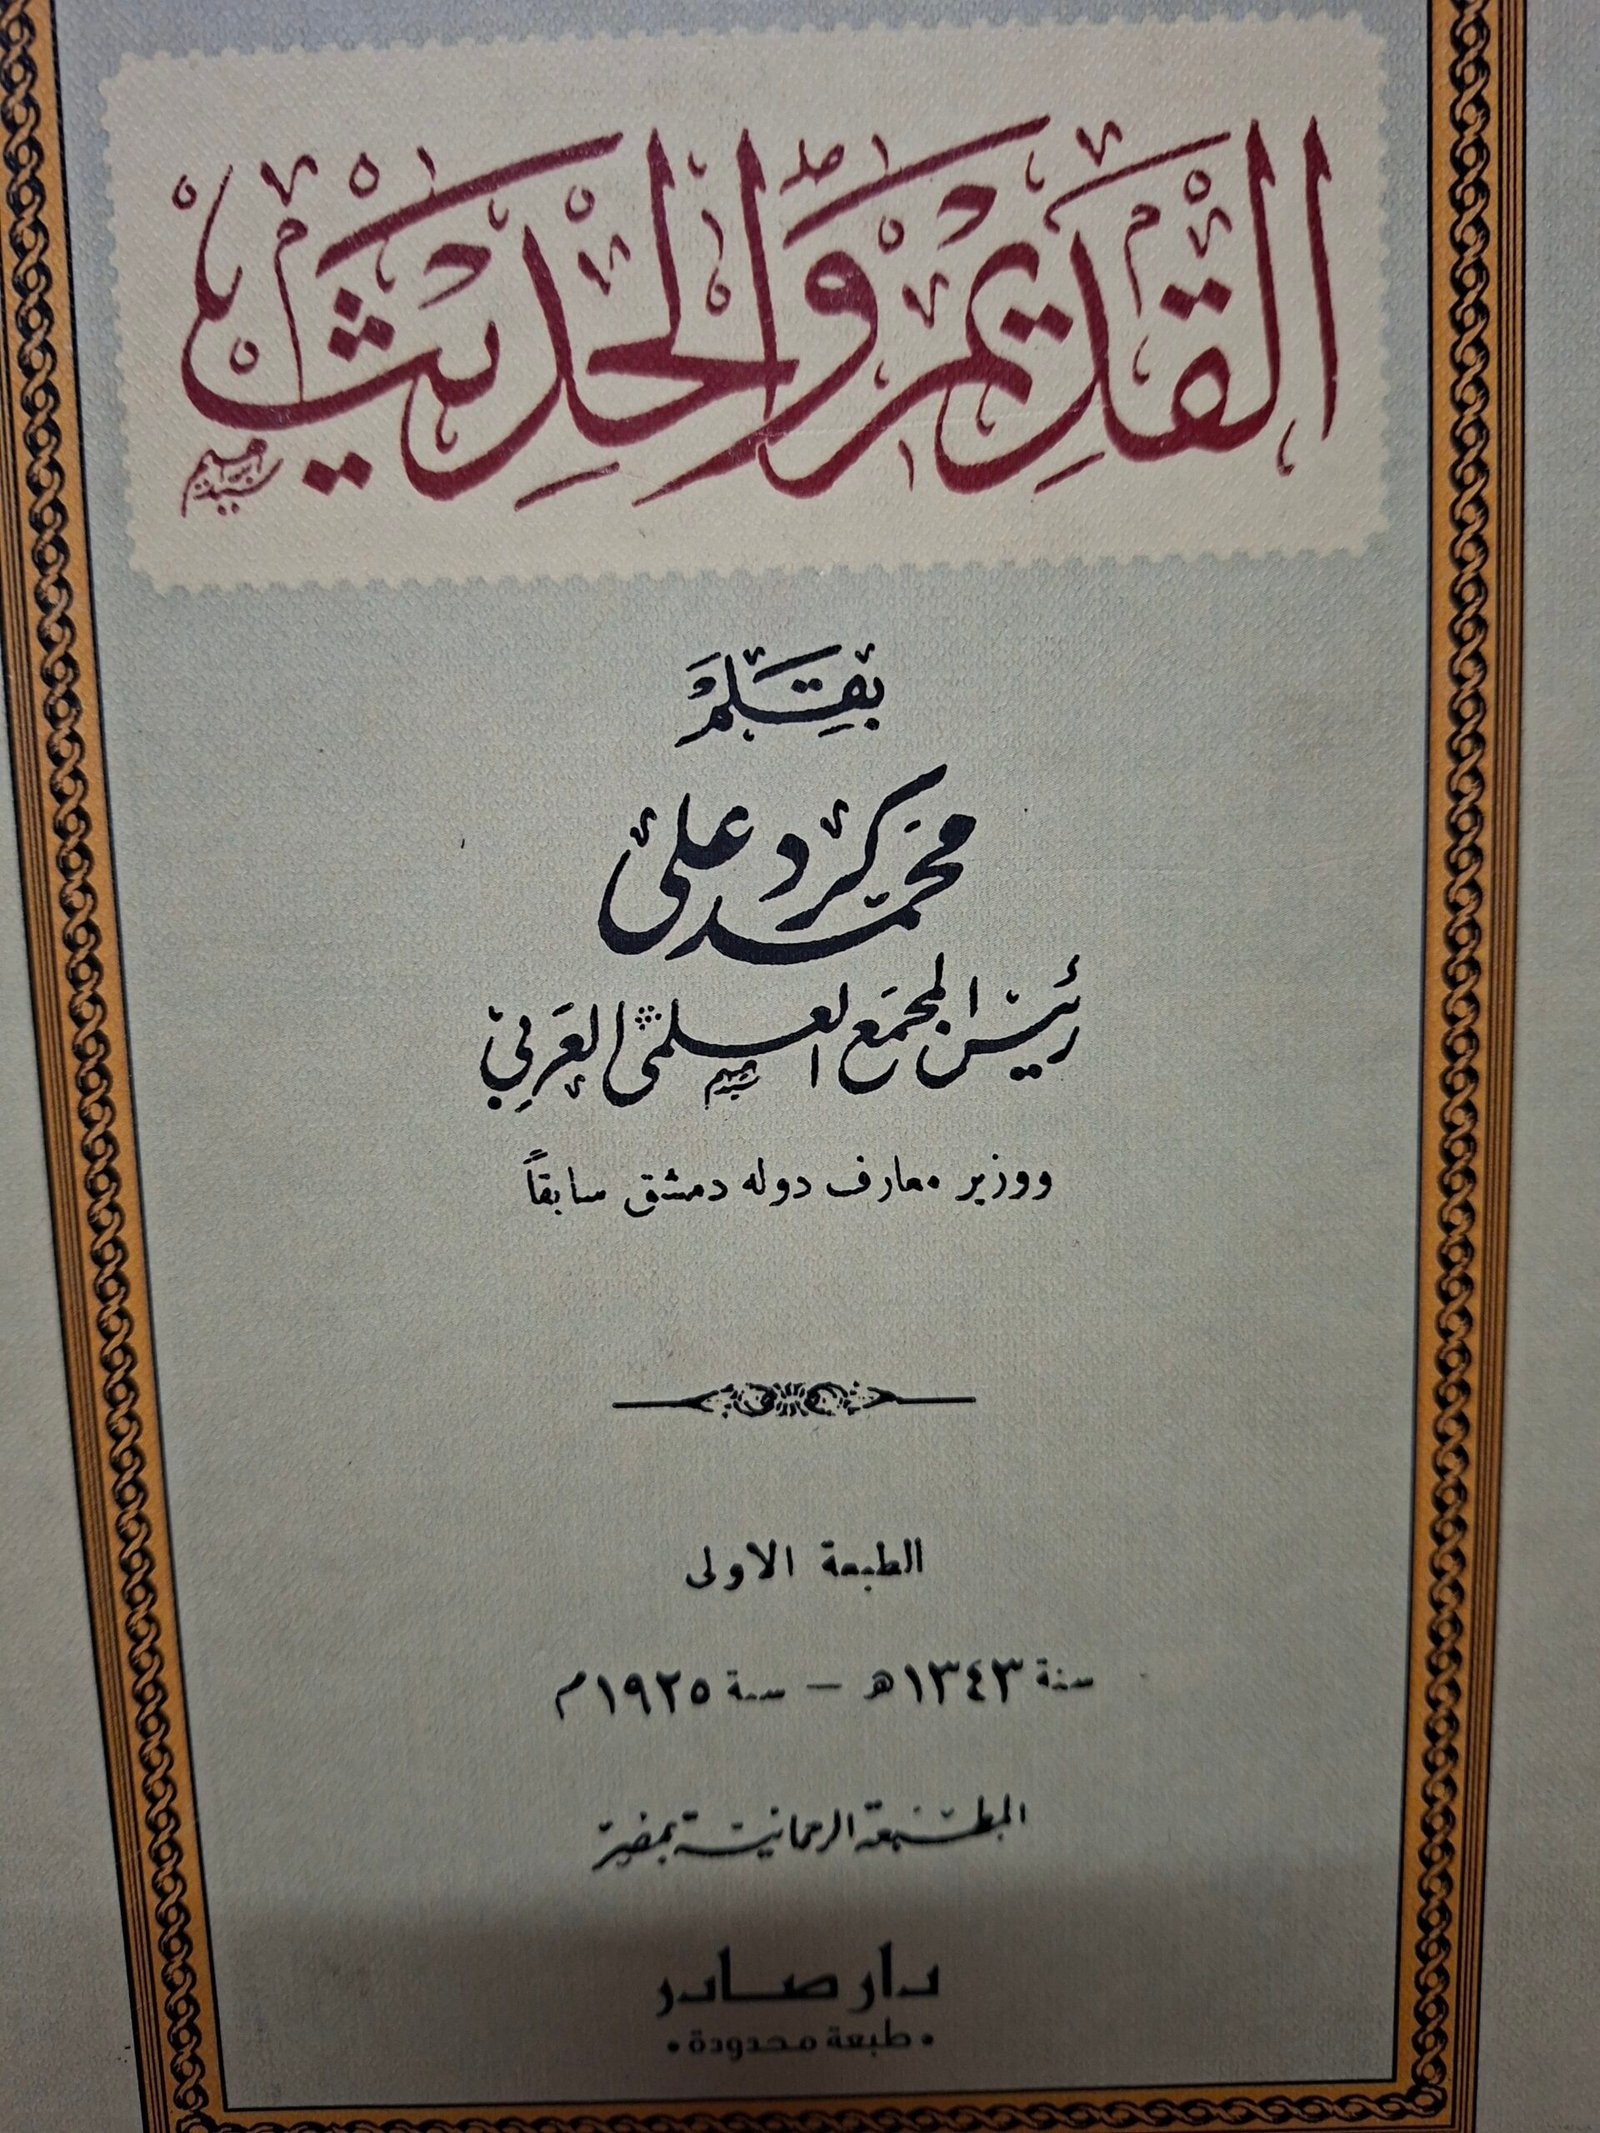 القديم والحديث
بقلم
محمد كرد علي
رئيس المجمع العلمي العربي
ووزير معارف دولة دمشق سابقاً
الطبعة الاولى
سنة ١٣٤٣ھ – سنة ١٩٢٥م
المطبعة الرحمانية بمصر
دار صادر
• طبعة محدودة •